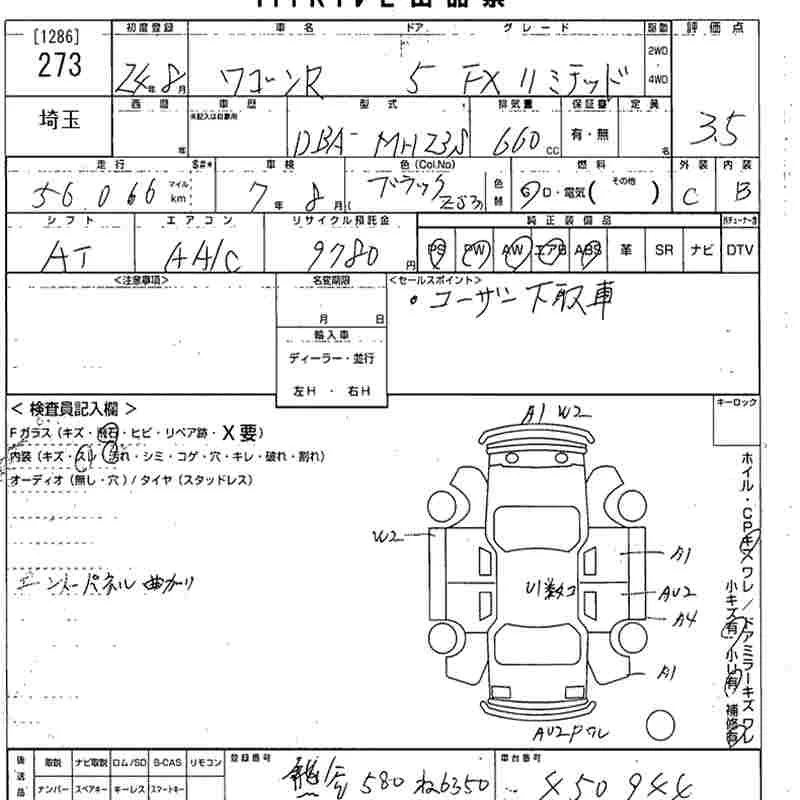 [1286]
273
初度登録 車名 ドア グレード 駆動 評価点
24年8月 ワゴンR 5 FXリミテッド 2WD・4WD 3.5
埼玉
西暦 車歴 型式 排気量 保証書 定員
年 ※記入は自家用 DBA-MH23S 660cc 有・無 名
走行 $#* 車検 色(Col.No) 燃料 外装 内装
56,066 マイル km 7年8月( ブラック ZJ3) 色替 G・D・電気( その他 ) C B
シフト エアコン リサイクル預託金 純正装備品
AT AA/C 9780円 PS PW AW エアB ABS 革 SR ナビ DTV
<注意事項> 名変期限 <セールスポイント>
月 日
・ユーザー下取車
輸入車
ディーラー・並行
左H・右H
<検査員記入欄> キーロック
Fガラス(キズ・飛石・ヒビ・リペア跡・X要)
内装(キズ・スレ・汚れ・シミ・コゲ・穴・キレ・破れ・割れ)
オーディオ(無し・穴)/タイヤ(スタッドレス)
A1 W2
W2
A1
U1数ケ
AU2
A4
エンドパネル曲がり
A1
AU2 P ワレ
ホイル・CPキズワレ/ドアミラーキズワレ
小キズ有/小凹有/補修有
後送品 取説 ナビ取説 ロム/SD B-CAS リモコン 登録番号 車台番号
ナンバー スペアキー キーレス スマートキー 熊谷 580 ね6350 450944